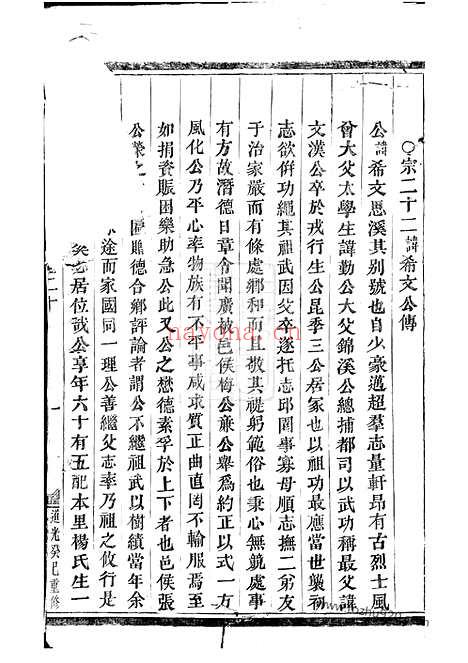 ○宗二十二諱希文公傳
公諱希文思溪其別號也自少豪邁超羣志量軒昂有古烈士風
曾大父太學生諱勤公大父錦溪公總捕都司以武功稱最父諱
文漢公卒於戎行生公昆季三公居冢也以祖功最應當世襲初
志欲倂功繩其祖武因父卒遂托志邱園事寡母順志撫二弟友
于治家嚴而有條處鄉和而且敬其禔躬範俗也秉心無競處事
有方故潛德日章令聞廣敀邑侯梅公亷公舉爲約正以式一方
風化公乃平心率物族有不平事咸求質正曲直罔不輸服焉至
如捐資賑困樂助急公此又公之懋德素孚於上下者也邑侯張
公榮 賜德合鄉評論者謂公不繼祖武以樹績當年余
途而家國同一理公善繼父志率乃祖之攸行是
居位哉公享年六十有五配本里楊氏生一
卷二十
一
道光癸巳重修
nayona.cn